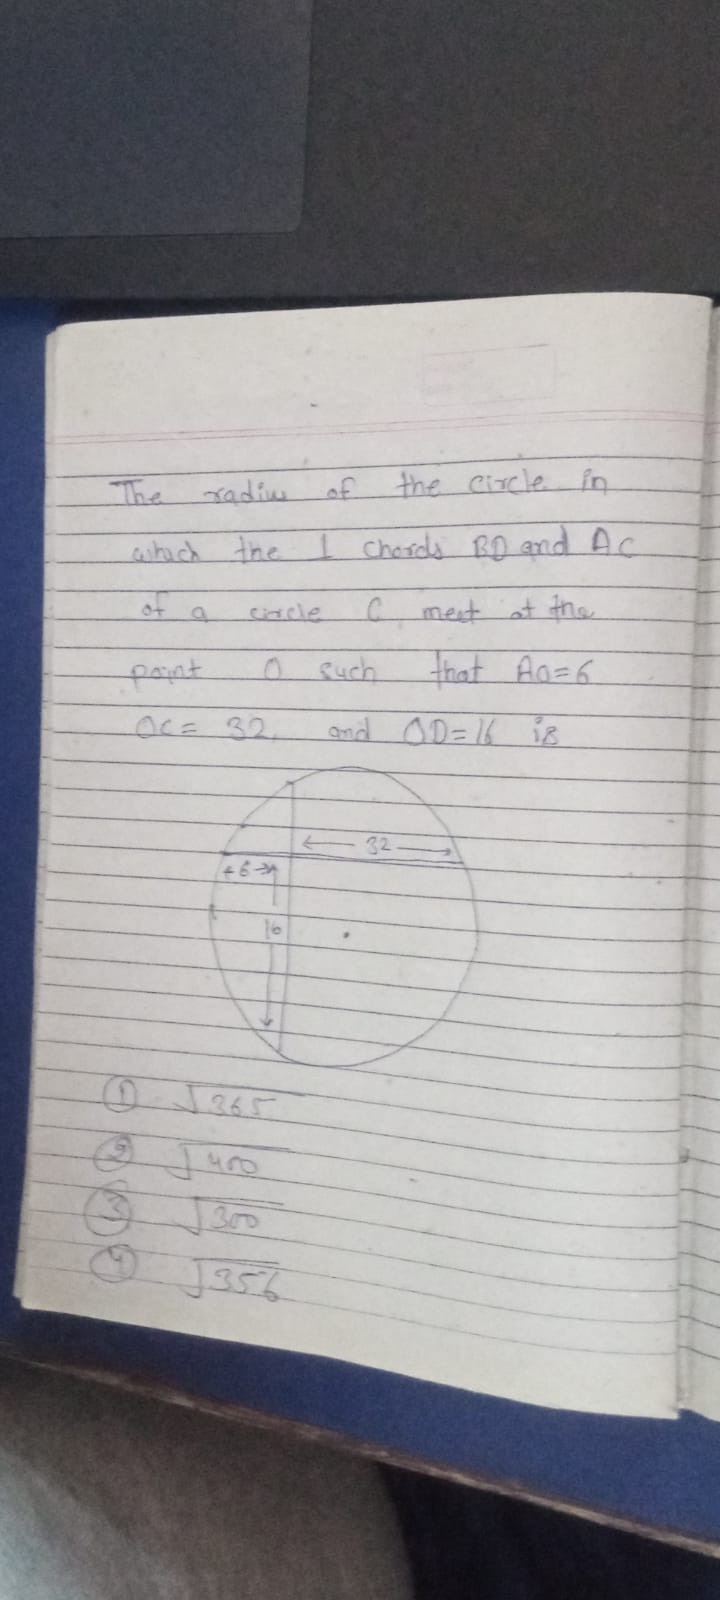 The radius of the circle in
which the ⊥ chords BD and AC
of a circle C meet at the
point O such that AO=6
OC= 32, and OD=16 is
32
6
16
① √365
② √400
③ √300
④ √356